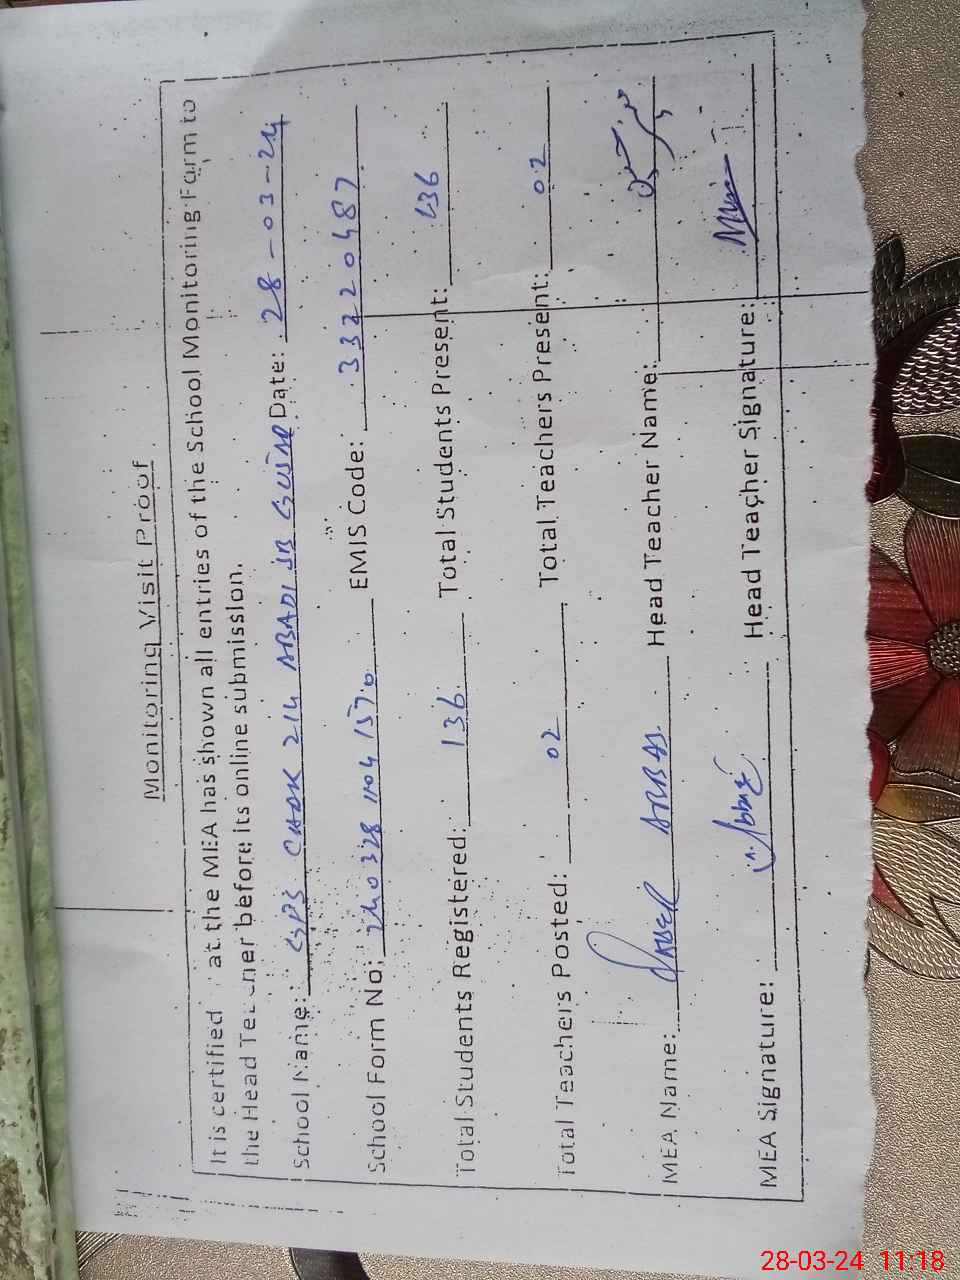 Monitoring Visit Proof
It is certified at the MEA has shown all entries of the School Monitoring Form to
the Head Teacher before its online submission.
School Name: GPS CHAK 214 ABADI JB Date: 28-03-24
School Form No: 240328 1104 1570 EMIS Code: 33220487
Total Students Registered: 136 Total Students Present: 136
Total Teachers Posted: 02 Total Teachers Present: 02
MEA Name: ABBAS Head Teacher Name:
MEA Signature: Head Teacher Signature:
28-03-24 11:18